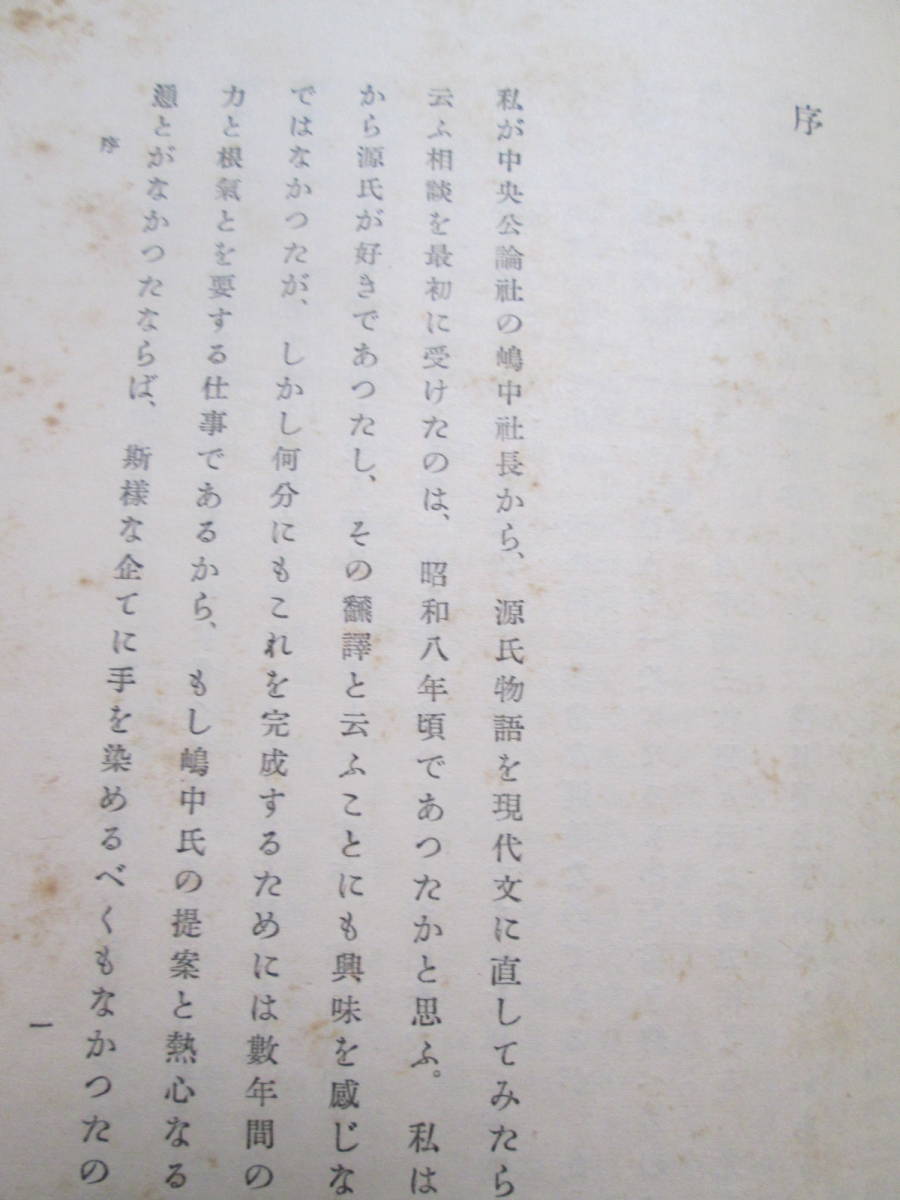 序
私が中央公論社の嶋中社長から、源氏物語を現代文に直してみたら
云ふ相談を最初に受けたのは、昭和八年頃であつたかと思ふ。私は
から源氏が好きであつたし、その飜譯と云ふことにも興味を感じな
ではなかつたが、しかし何分にもこれを完成するためには數年間の
力と根氣とを要する仕事であるから、もし嶋中氏の提案と熱心なる
慂とがなかつたならば、斯樣な企てに手を染めるべくもなかつたの
序
一